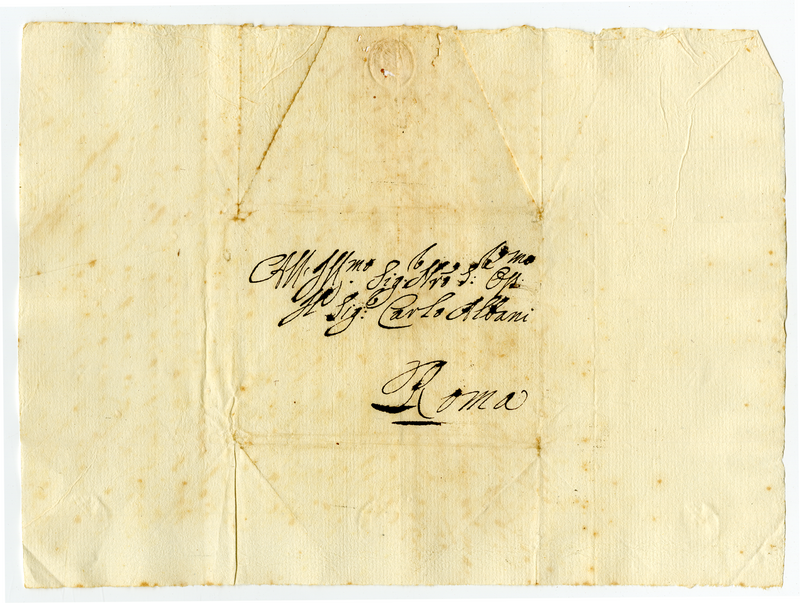 All. Ill.mo Sig.re Nro S.r Oss.mo
Il Sig.re Carlo Albani
Roma